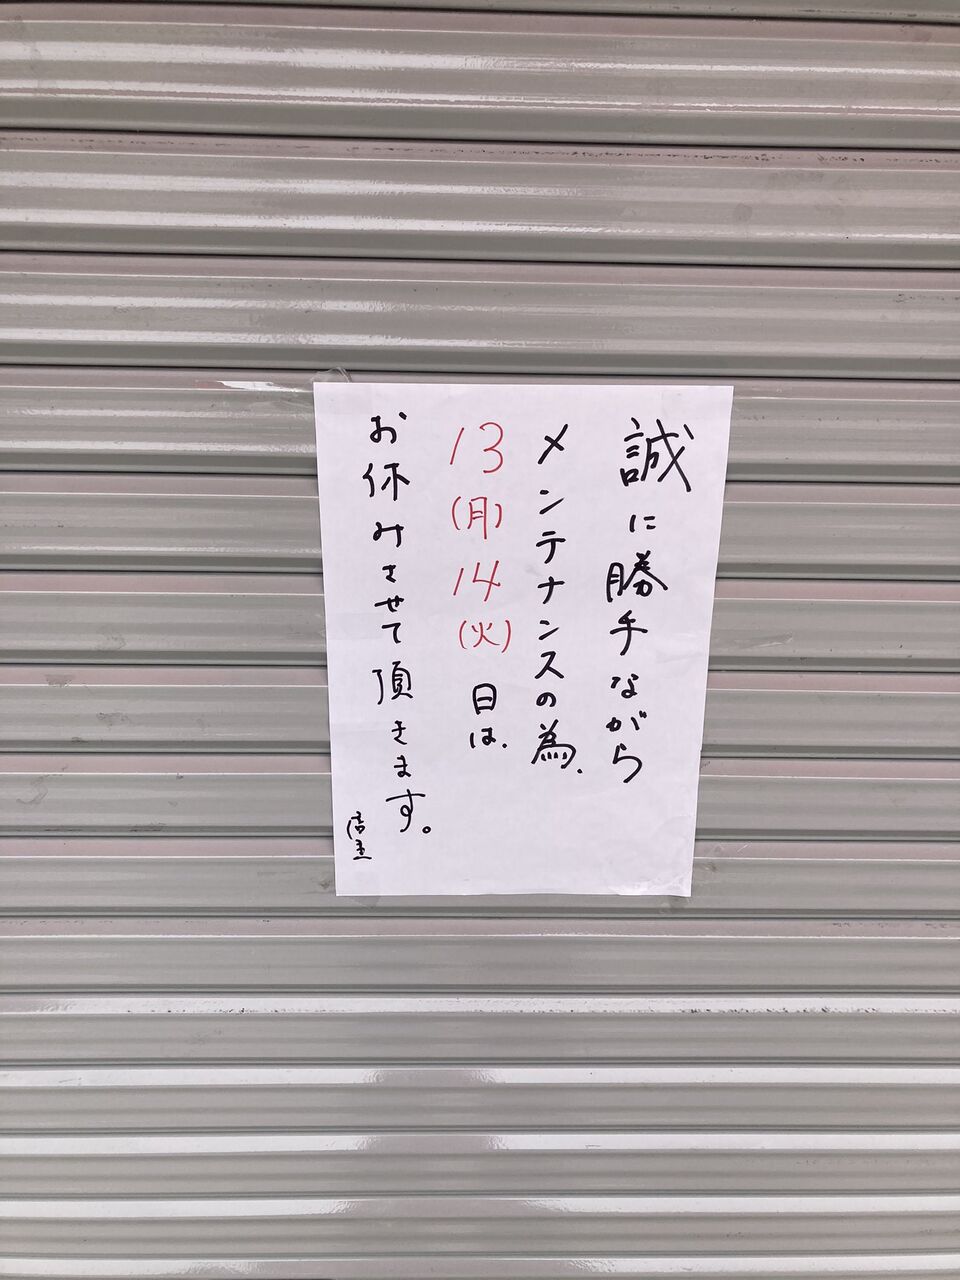 誠に勝手ながら
メンテナンスの為、
13(月)14(火)日は、
お休みさせて頂きます。
店主